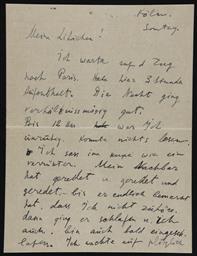 Köln.
Sonntag.
Mein Liebchen!
Ich warte auf d Zug
nach Paris. Habe hier 3 Stunde
Aufenthalt. Die Nacht ging
verhältnissmässig gut.
Bis 12 Uhr war ich
einzeln, konnte nichts lesen.
Ich sass im wie ein
verrückter. Mein Nachbar
hat geredet u geredet und
geredet bis er endlich bemerkt
hat, dass ich nicht zuhöre.
dann ging er schlafen u. ich
auch. bin auch bald eingesch-
lafen. Ich wachte auf plötzlich